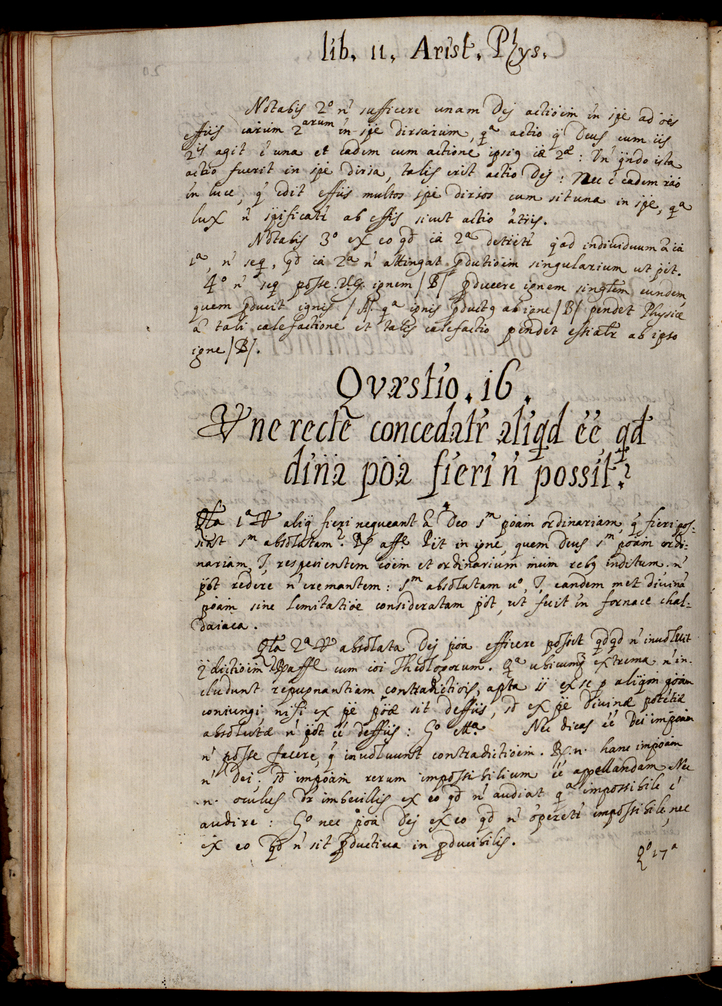 lib. 11. Arist. Phys.
Notabis 2º n̄ sufficere unam Dej actiōēm in spē ad oēs
effūs cārum 2arum in spē dīrsarum, qª actio q̄ Deus cum iis
2is agit ē una et eadem cum actione ipsiꝰ cæ 2æ: Vn̄ qn̄do ista
actio fuerit in spē dīrsa, talis erit actio Dej: Nec ē eadem rāo
in luce, q̄ ēdit effūs multos spē dīrsos cum sit una in spē, qª
lux n̄ spīficatr̄ ab effīs sicut actio
Notabis 3º ex eo qd̄ cā 2ª detr̄etr̄ quoad individuum à cā
1ª, n̄ seq̄, qd̄ cā 2ª n̄ attingat ꝓdutiōēm singularium ut pit.
4º n̄ seq̄ posse v.g. ignem /B/ ꝓducere ignem singlēm eundem
quem ꝓducit ignis /A/ qª ignis ꝓductꝰ ab igne /B/ pendet Physicè
à tali calefactione et talis calefactio pendet essēatr̄ ab ipso
igne /B/.
Qvæstio. 16.
Vne rectē concedatr̄ aliqd̄ ēē qd̄
dīna pōa fieri n̄ possit?
Qta 1ª Vt̄ aliq̄ fieri nequeant à Deo sm pōam ordinariam, q̄ fieri pos-
sint sm absolutam? R̄. affē. Pit in igne, quem Deus sm pōam ordi-
nariam, J, respicientem cōēm et ordinarium mūm rebꝰ inditum, n̄
pōt̄ redere n̄ cremantem: sm absolutam uº, J, eandem met divinā
pōam sine limitatiōe consideratam pōt, ut fuit in fornace chal-
daiaca.
Qta 2ª Vt̄ absoluta Dej pōa efficere possit qd̄qd̄ n̄ involvit
ꝯdictiōēm? R̄. affē cum cōi Theologorum. qª ubicumq̄ extrema n̄ in-
cludunt repugnantiam contradictiōis, apta ii ex se ꝑ aliqm̄ pōam
coniungi nisi ex p̄e pōæ sit deffūs, sd̄ ex p̄e divinæ potētiæ
absolutæ n̄ pōt ēē deffūs: Gº Mª. Nec dicas ēē Dei impōam
n̄ posse facere, q̄ involvunt contradictiōēm. R̄. n. hanc impōam
n̄ Dei, sd̄ impōam rerum impossibilium ēē appellandam. Nec
.n. oculus dr̄ imbecillis ex eo qd̄ n̄ audiat qª impossibile ē
audire: Gº nec pōa Dej ex eo qd̄ n̄ operetr̄ impossibile, nec
ex eo qd̄ n̄ sit ꝓductiva in ꝓducibilis.
Qº 17ª